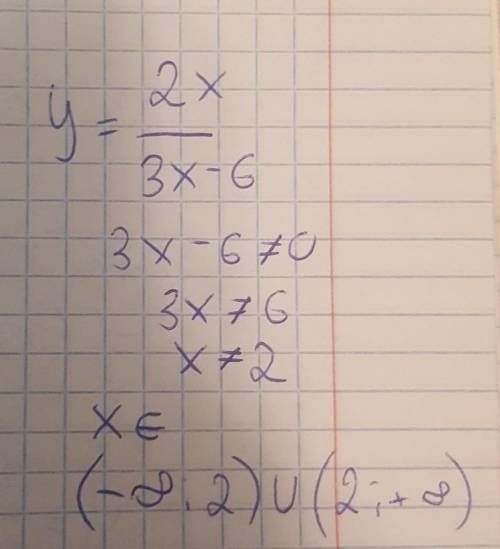 y = 2x / 3x - 6
3x - 6 ≠ 0
3x ≠ 6
x ≠ 2
x ∈
(-∞ ; 2) ∪ (2 ; +∞)